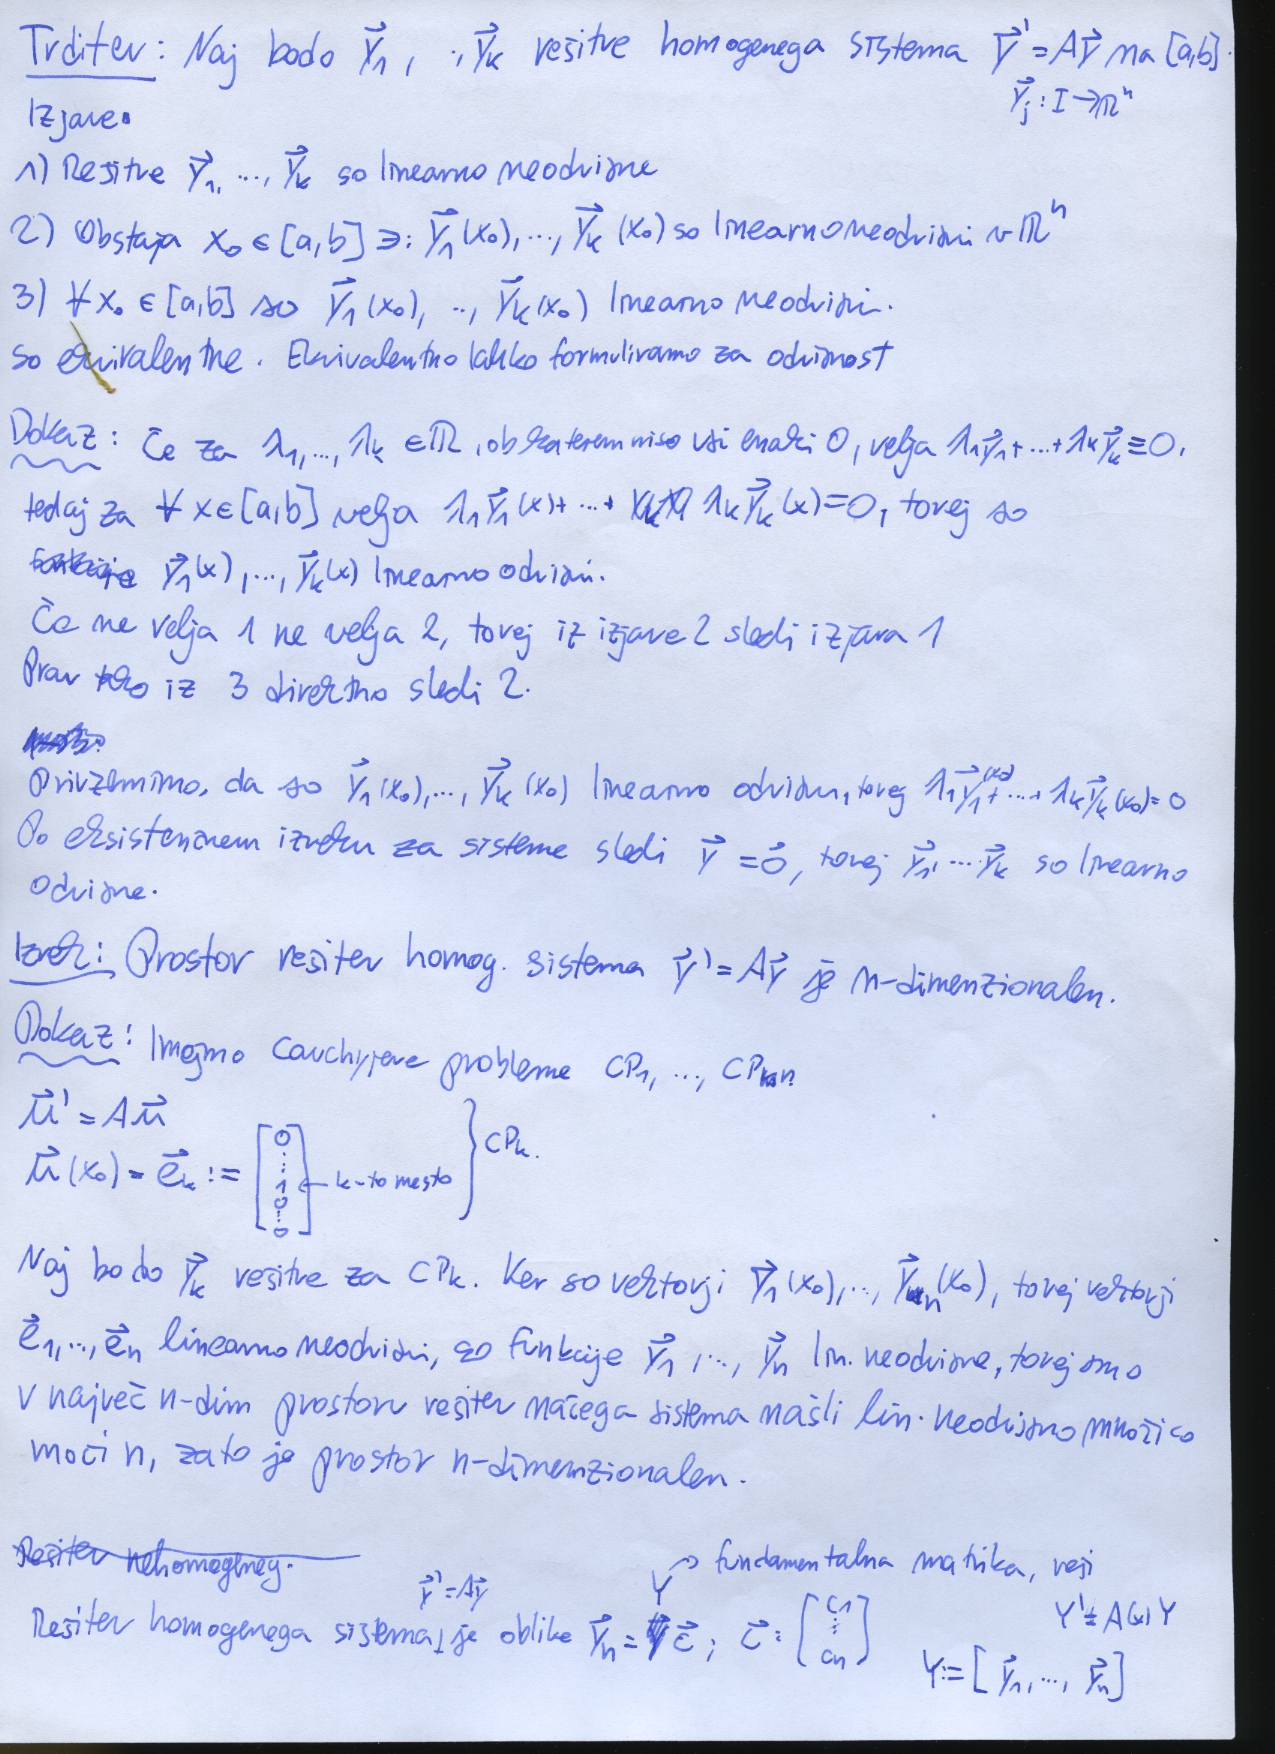 Trditev: Naj bodo y⃗₁, .., y⃗ₖ rešitve homogenega sistema y⃗' = Ay⃗ na [a,b].
y⃗ⱼ : I → ℝⁿ
Izjave:
1) Rešitve y⃗₁, ..., y⃗ₖ so linearno neodvisne
2) Obstaja x₀ ∈ [a,b] ∋: y⃗₁(x₀), ..., y⃗ₖ(x₀) so linearno neodvisni v ℝⁿ
3) ∀ x₀ ∈ [a,b] so y⃗₁(x₀), .., y⃗ₖ(x₀) linearno neodvisni.
so ekvivalentne. Ekvivalentno lahko formuliramo za odvisnost
Dokaz: Če za λ₁, ..., λₖ ∈ ℝ, ob katerem niso vsi enaki 0, velja λ₁y⃗₁ + ... + λₖy⃗ₖ ≡ 0,
tedaj za ∀ x ∈ [a,b] velja λ₁y⃗₁(x) + ... + λₖy⃗ₖ(x) = 0, torej so
y⃗₁(x), ..., y⃗ₖ(x) linearno odvisni.
Če ne velja 1 ne velja 2, torej iz izjave 2 sledi izjava 1
Prav tako iz 3 direktno sledi 2.
Privzemimo, da so y⃗₁(x₀), ..., y⃗ₖ(x₀) linearno odvisni, torej λ₁y⃗₁(x₀) + ... + λₖy⃗ₖ(x₀) = 0
Po eksistenčnem izreku za sisteme sledi y⃗ = 0⃗, torej y⃗₁, ... y⃗ₖ so linearno
odvisne.
Izrek: Prostor rešitev homog. sistema y⃗' = Ay⃗ je n-dimenzionalen.
Dokaz: Imejmo Cauchyjeve probleme CP₁, ..., CPₙ
u⃗' = Au⃗
u⃗(x₀) = e⃗ₖ := [0 ... 1 0 ... 0] ← k-to mesto } CPₖ.
Naj bodo y⃗ₖ rešitve za CPₖ. Ker so vektorji y⃗₁(x₀), ..., y⃗ₙ(x₀), torej vektorji
e⃗₁, ..., e⃗ₙ linearno neodvisni, so funkcije y⃗₁, ..., y⃗ₙ lin. neodvisne, torej smo
v največ n-dim prostoru rešitev našega sistema našli lin. neodvisno množico
moči n, zato je prostor n-dimenzionalen.
Rešitev nehomogeneg.
Y → fundamentalna matrika, reši
y⃗' = Ay⃗
Y' = A(x)Y
Rešitev homogenega sistema je oblike y⃗ₕ = Y c⃗ ; c⃗ = [c₁ ⋮ cₙ]
Y := [y⃗₁, ..., y⃗ₙ]